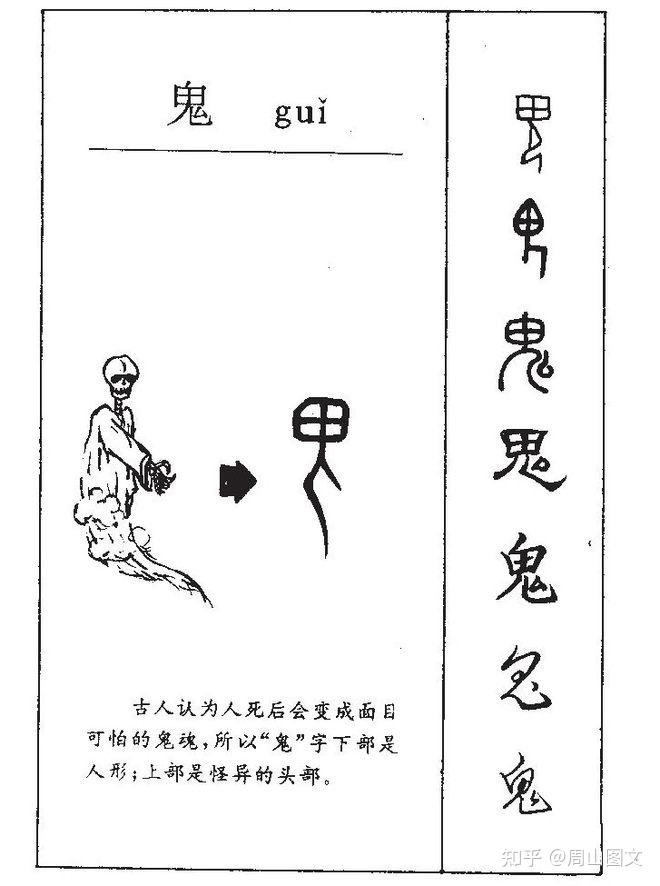 鬼 guǐ
古人认为人死后会变成面目
可怕的鬼魂，所以“鬼”字下部是
人形；上部是怪异的头部。
鬼
鬼
鬼
鬼
鬼
鬼
鬼
知乎 @周山图文